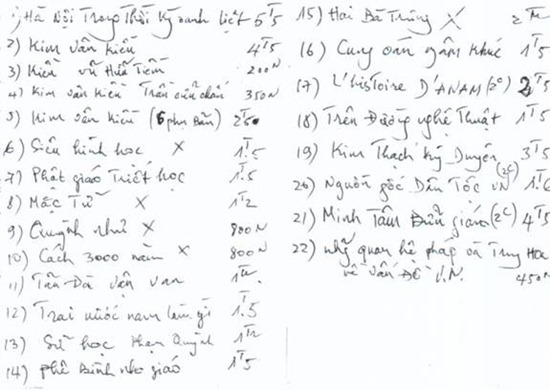 1) Hà Nội Trong Thời Kỳ oanh liệt 5T5
2) Kim Vân Kiều 4T5
3) Kiều Vũ Hữu Tiềm 200N
4) Kim Vân Kiều Trần 350N
5) Kim Vân Kiều (6 phụ Bản) 250
6) Siêu hình học X 1T5
7) Phật giáo Triết học 1T5
8) Mặc Tử X 1T2
9) Quỳnh như X 800N
10) Cách 3000 năm X 800N
11) Tản Đà Vận Văn 1Tr
12) Trai nước nam làm gì 1T5
13) Sử học Phạm Quỳnh 1T2
14) Phê Bình nho giáo 1T5
15) Hai Bà Trưng X 2Tr
16) Cung oán ngâm khúc 1T5
17) L'histoire D'ANAM (2C) 2T5
18) Trên Đường nghệ Thuật 1T5
19) Kim Thạch Kỳ Duyên 3T5
20) Nguồn gốc Dân Tộc VN (2C) 1T6
21) Minh Tâm Bửu giám (2C) 4T5
22) những quan hệ pháp và Trung Hoa
về vấn ĐỀ V.N. 450N